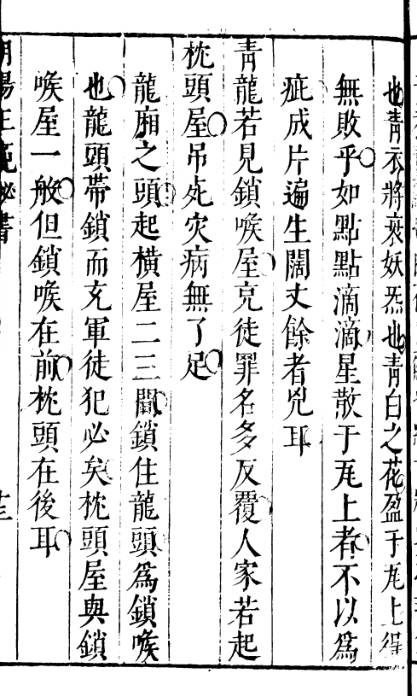 也青衣將衰妖炁也青白之花盈于瓦上得
無敗乎如點點滴滴星散于瓦上者不以爲
疵成片遍生闊丈餘者兇耳
青龍若見鎖喉屋充徒罪名多反覆人家若起
枕頭屋吊死灾病無了足
龍廂之頭起橫屋二三間鎖住龍頭爲鎖喉
也龍頭帶鎖而充軍徒犯必矣枕頭屋與鎖
喉屋一般但鎖喉在前枕頭在後耳